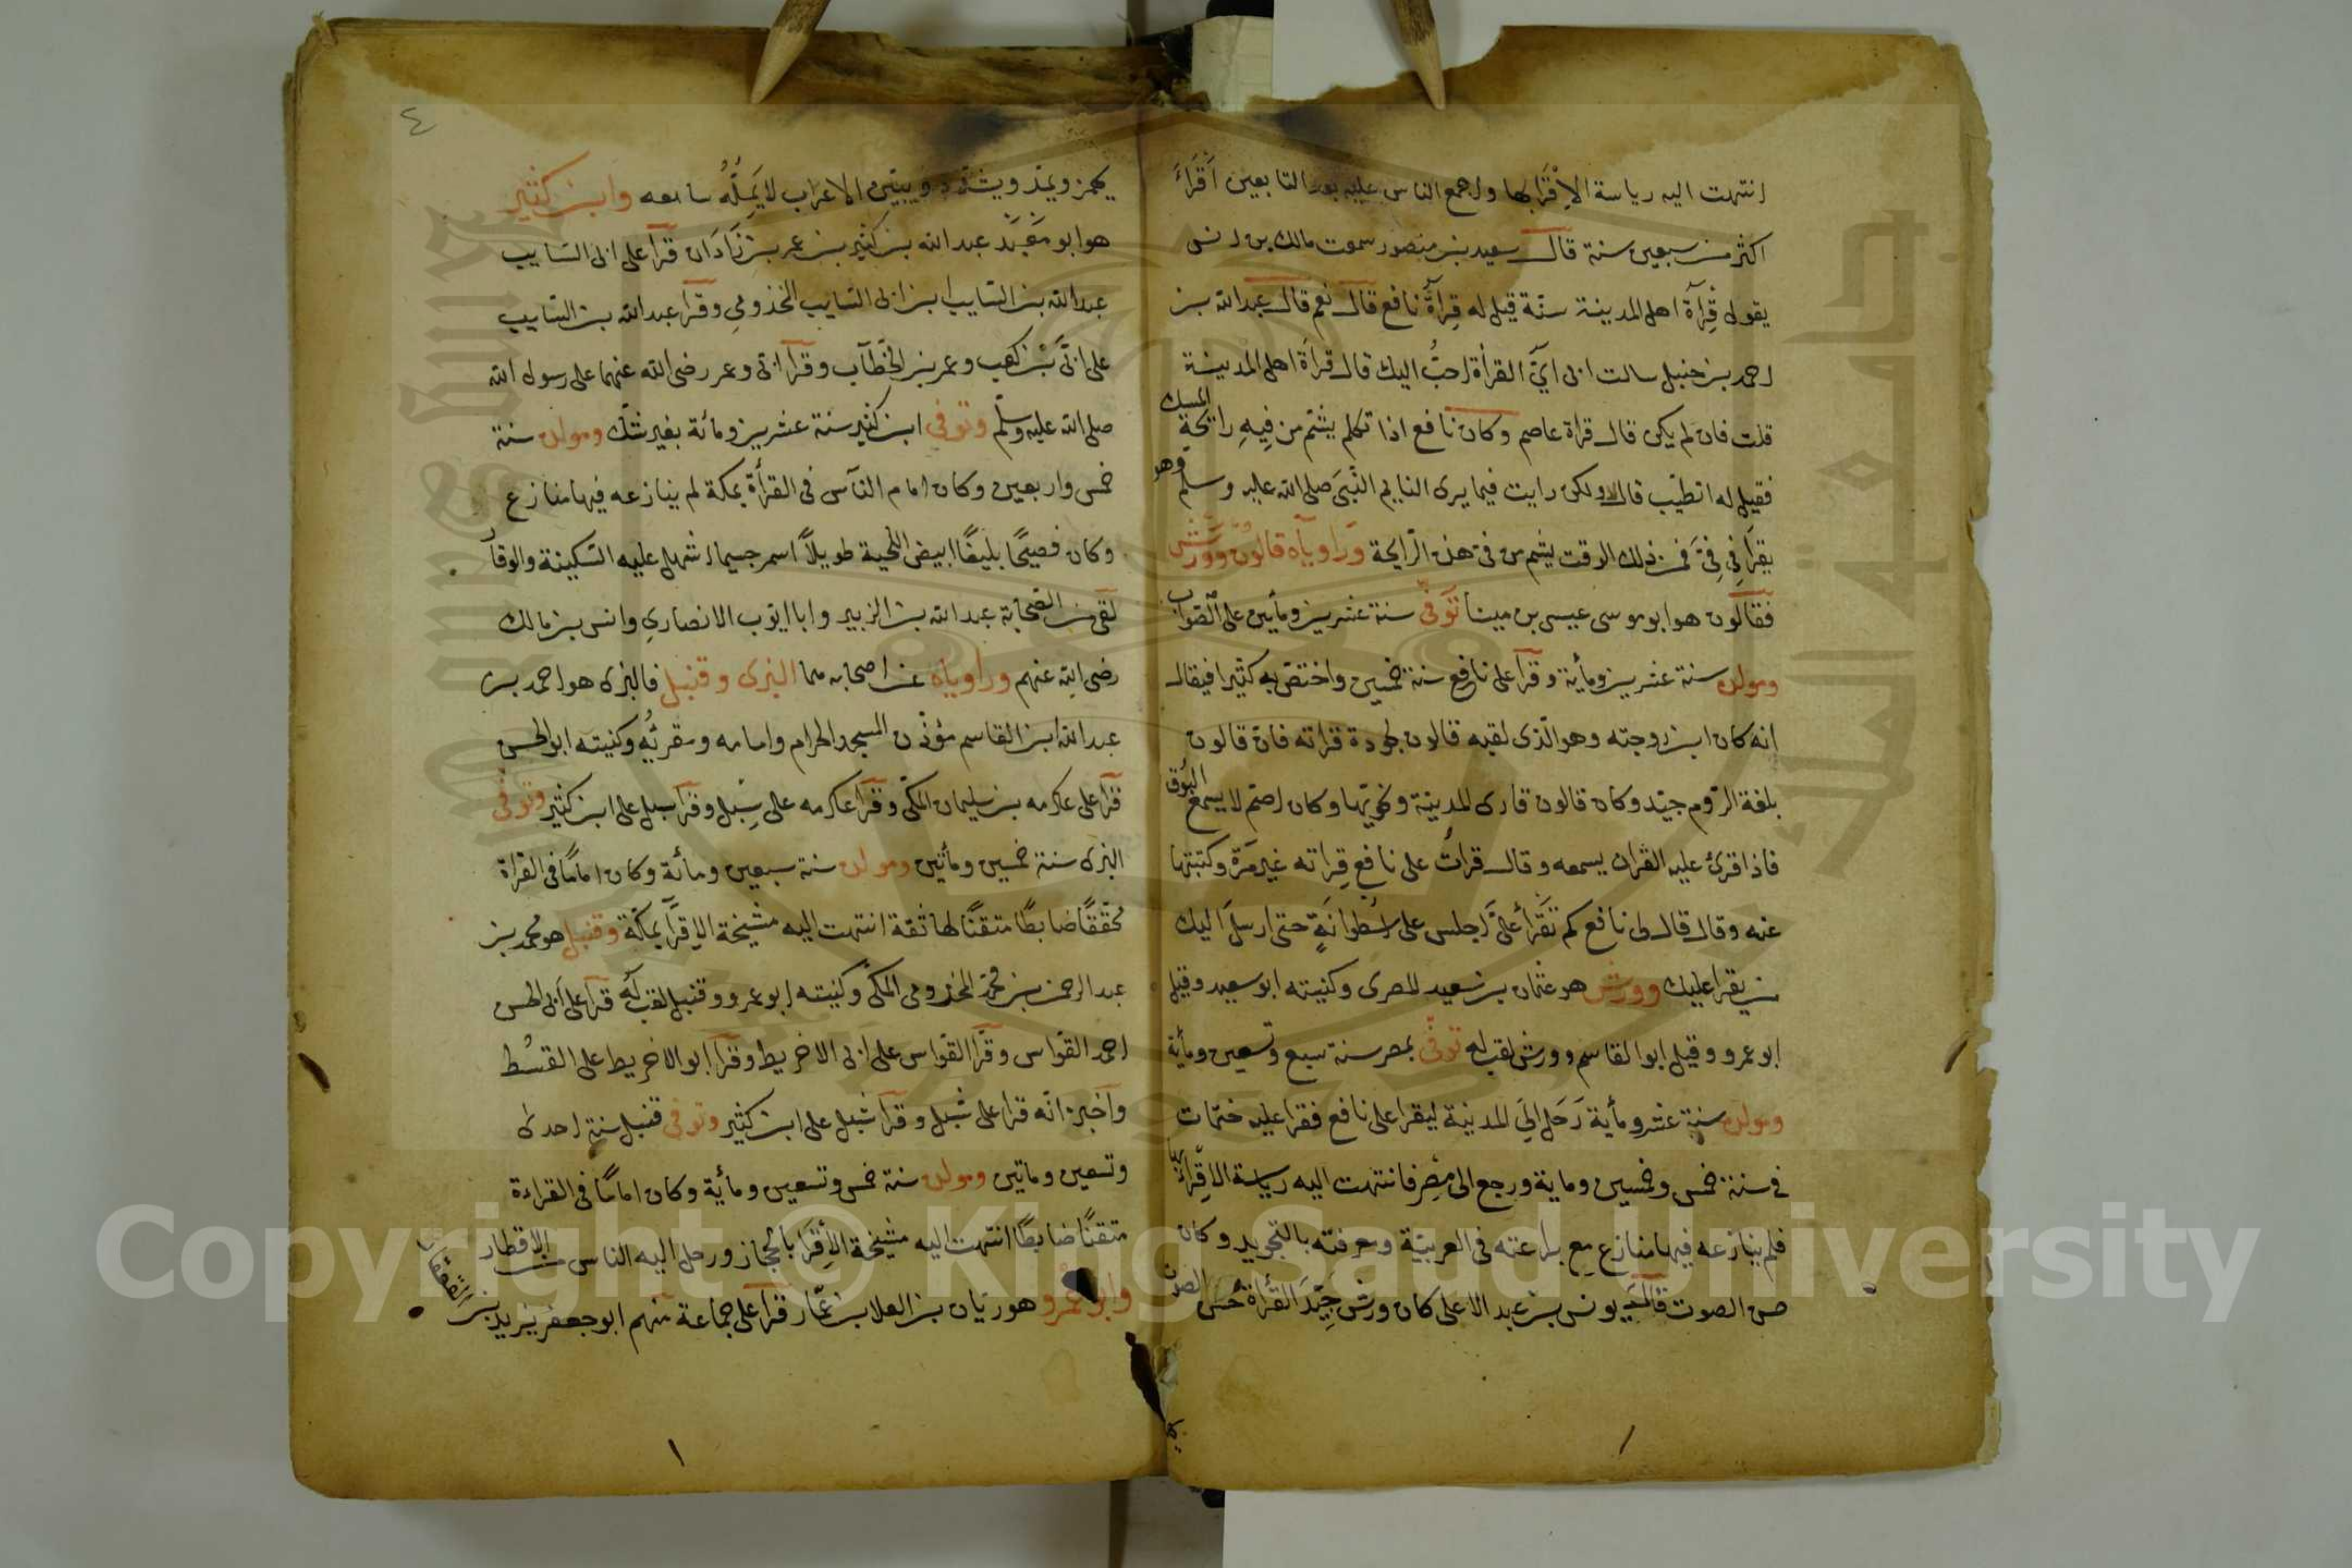 انتهت اليه رياسة الاقرا بها واجمع الناس عليه بعد التابعين اقراء
اكثر من سبعين سنة قال سعيد بن منصور سمعت مالك بن انس
يقول قراة اهل المدينة سنة قيل له قراة نافع قال نعم قال عبد الله بن
احمد بن حنبل سالت ابى اىّ القراة احبّ اليك قال قراة اهل المدينة
قلت فان لم يكن قال قراة عاصم وكان نافع اذا تكلم يشم من فيه رايحة المسك
فقيل له اتطيب قال لا ولكن رايت فيما يرى النايم النبى صلى الله عليه وسلم وهو
يقرا فى فىّ فمن ذلك الوقت يشم من فى هذه الرايحة وراوياه قالون وورش
فقالون هو ابو موسى عيسى بن مينا توفى سنة عشرين ومأتين على الصواب
ومولده سنة عشرين ومأية وقرأ على نافع سنة خمسين واختص به كثيرا فيقال
انه كان ابن زوجته وهو الذى لقبه قالون لجودة قراته فان قالون
بلغة الروم جيد وكان قالون قارى المدينة ونحويها وكان اصم لا يسمع البوق
فاذا قرئ عليه القران يسمعه وقال قرات على نافع قراته غير مرة وكتبتها
عنه وقال قال لى نافع كم تقرأ علىّ اجلس على اسطوانة حتى ارسل اليك
من يقرا عليك وورش هو عثمان بن سعيد المصرى وكنيته ابو سعيد وقيل
ابو عمرو وقيل ابو القاسم وورش لقب له توفى بمصر سنة سبع وتسعين ومأية
ومولده سنة عشر ومأية رحل الى المدينة ليقرا على نافع فقرا عليه ختمات
فى سنة خمس وخمسين وماية ورجع الى مصر فانتهت اليه رياسة الاقراء
فلم ينازعه فيها منازع مع براعته فى العربية ومعرفته بالتجويد وكان
حسن الصوت قال يونس بن عبد الاعلى كان ورش جيد القراة حسن الصوت
٤
يهمز ويمد ويشدد ويبين الاعراب لا يمله سامعه وابن كثير
هو ابو معبد عبد الله بن كثير بن عمر بن زادان قرأ على ابى السايب
عبد الله بن السايب ابن ابى السايب المخذومى وقرأ عبد الله بن السايب
على ابىّ بن كعب وعمر بن الخطاب وقرأ ابى وعمر رضى الله عنهما على رسول الله
صلى الله عليه وسلم وتوفى ابن كثير سنة عشرين ومائة بغير شك ومولده سنة
خمس واربعين وكان امام الناس فى القرأة بمكة لم ينازعه فيها منازع
وكان فصيحا بليغا ابيض اللحية طويلا اسمر جسيما اشهل عليه السكينة والوقار
لقى من الصحابة عبد الله بن الزبير وابا ايوب الانصارى وانس بن مالك
رضى الله عنهم وراوياه عن اصحابه هما البزى وقنبل فالبزى هو احمد بن
عبد الله ابن القاسم مؤذن المسجد الحرام وامامه ومقرئه وكنيته ابو الحسن
قرأ على عكرمه بن سليمان المكى وقرأ عكرمه على شبل وقرأ شبل على ابن كثير وتوفى
البزى سنة خمسين ومأتين ومولده سنة سبعين ومائة وكان اماما فى القراة
محققا ضابطا متقنا لها ثقة انتهت اليه مشيخة الاقرا بمكة وقنبل هو محمد بن
عبد الرحمن بن محمد المخذومى المكى وكنيته ابو عمرو وقنبل لقب له قرأ على ابى الحسن
احمد القواس وقرأ القواس على ابى الاخريط وقرأ ابو الاخريط على القسط
واخبره انه قرا على شبل وقرأ شبل على ابن كثير وتوفى قنبل سنة احدى
وتسعين وماتين ومولده سنة خمس وتسعين ومأية وكان اماما فى القراءة
متقنا ضابطا انتهت اليه مشيخة الاقرا بالحجاز ورحل اليه الناس من الاقطار
وابو عمرو هو زبان بن العلا بن عمار قرأ على جماعة منهم ابو جعفر يزيد بن القعقاع
Copyright © King Saud University